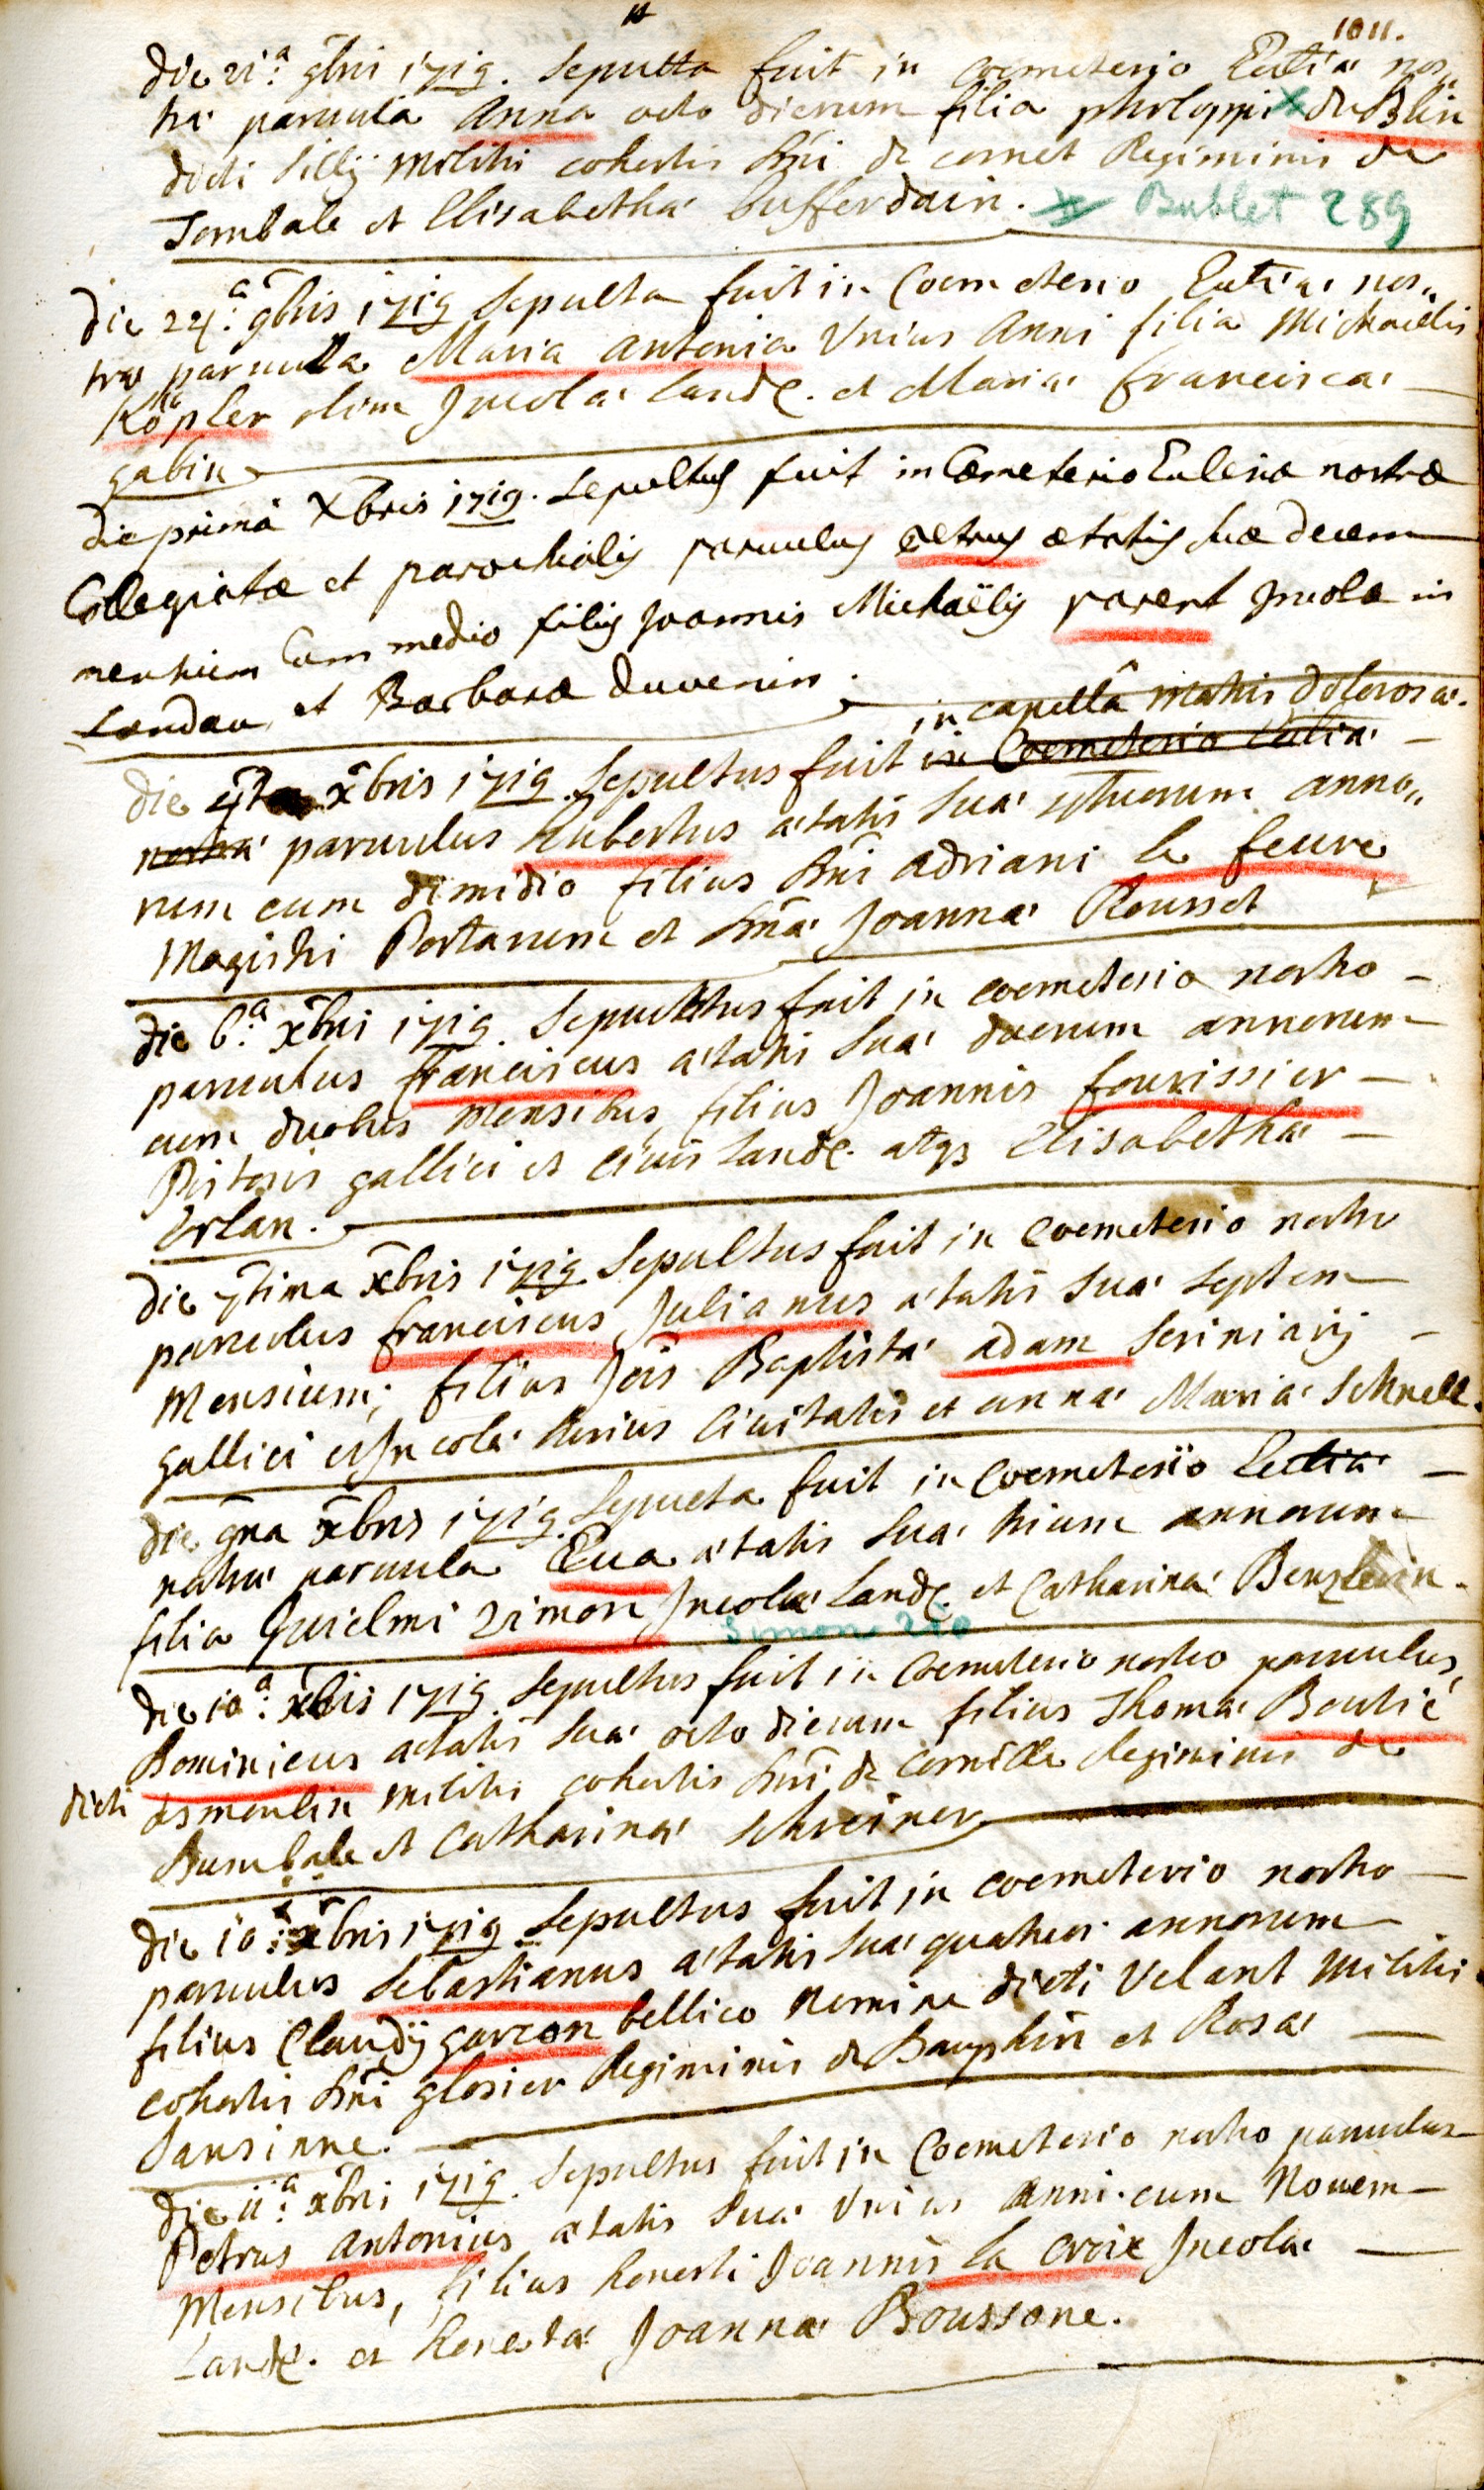 1011.
die 21.a 9bri 1719. Sepulta fuit in coemeterio Eccliae nos„
trae parvula Anna octo dierum filia philippi du Blin
dicti Silly militis cohortis Dni de cornet Regiminis de
Tombale et Elisabetha bufferdain. Bublet 289
die 24.a 9bris 1719 Sepulta fuit in Coemeterio Eccliae nos„
trae parvula Maria Antonia Unius Anni filia Michaelis
Köpler olim Incolae Landae. et Maria Francisca
gabin
die prima Xbris 1719. sepultus fuit in Cœmeterio Ecclesiæ nostræ
Collegiatæ et parochialis parvulus petrus ætatis suæ decem
mensium cum medio filius Joannis Michaëlis parent Incolæ in
Landau et Barbaræ duvenin.
in capellâ Matris Dolorosae.
die 4ta xbris 1719 Sepultus fuit in Coemeterio Eccliae
nostrae parvulus hubertus aetatis suae 4tuorum anno„
rum cum dimidio filius Dni Adriani le feure
Magistri Postarum et Dnae Joanna Rousset
die 6.a xbri 1719. Sepultus fuit in coemeterio nostro
parvulus franciscus aetatis suae duorum annorum
cum duobus mensibus, filius Joannis fourissier
Pistoris gallici et civis Landae. atq3 Elisabetha
Erlan.
die 7tima xbris 1719 Sepultus fuit in coemeterio nostro
parvulus franciscus Julianus aetatis suae septem
Mensium; filius Jois Baptistae adam scriniarij
gallici et Incolae huius Civitatis et anna Maria Schnell.
die 9na xbris 1719. Sepulta fuit in coemeterio Eccliae
nostrae parvula Eva aetatis suae trium annorum
filia Guielmi Zimon Incolae Landae. et Catharina Benzlerin.
Simon 290
die 10.a xbris 1719 Sepultus fuit in coemeterio nostro parvulus
Dominicus aetatis suae octo dierum filius Thomae Boutié
dicti desmoulin militis cohortis Dni de Cornille Regiminis de
Dumbale et Catharina Schreiner
die 10.a xbris 1719 Sepultus fuit in coemeterio nostro
parvulus Sebastianus aetatis suae quatuor annorum
filius Claudij garcon bellico nomine dicti Velant militis
cohortis Dni glosier Regiminis de Dauphin et Rosa
Sansinne.
die 11.a xbri 1719. Sepultus fuit in Coemeterio nostro parvulus
Petrus Antonius aetatis suae Unius Anni cum Novem
Mensibus, filius honesti Joannis la croix Incolae
Landae. et honesta Joanna Boussone.